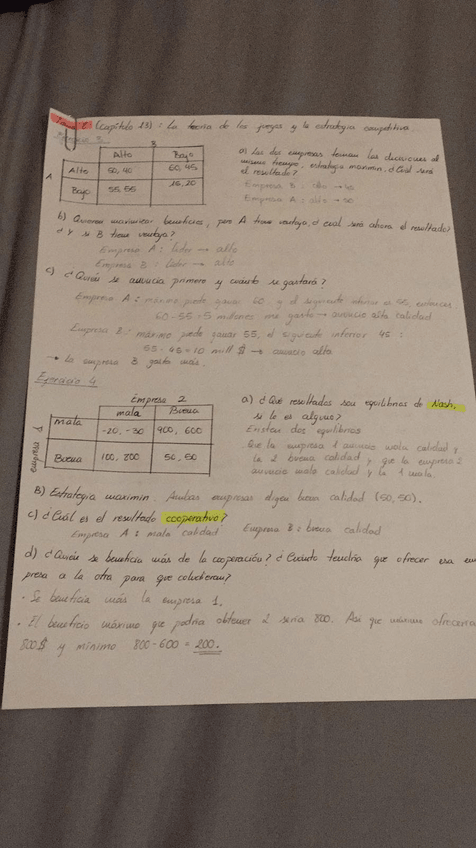 (Capítulo 13): La teoría de los juegos y la estrategia competitiva.
B
Alto Bajo
A Alto 50, 40 60, 45
Bajo 55, 55 15, 20
a) Las dos empresas toman las decisiones al
mismo tiempo, estrategia maximin. ¿Cuál será
el resultado?
Empresa B: alto → 40
Empresa A: alto → 50
b) Quieren maximizar beneficios, pero A tiene ventaja, ¿cuál será ahora el resultado?
¿Y si B tiene ventaja?
Empresa A: líder → alto
Empresa B: líder → alto
c) ¿Quién se anuncia primero y cuánto se gastará?
Empresa A: máximo puede ganar 60 y el siguiente inferior a 55, entonces
60-55=5 millones me gasto → anuncio alta calidad
Empresa B: máximo puede ganar 55, el siguiente inferior 45:
55-45=10 mill $ → anuncio alta
→ La empresa B gasta más.
Ejercicio 4
Empresa 2
mala Buena
Empresa 1 mala -20, -30 900, 600
Buena 100, 800 50, 50
a) ¿Qué resultados son equilibrios de Nash,
si lo es alguno?
Existen dos equilibrios
Que la empresa 1 anuncie mala calidad y
la 2 buena calidad y que la empresa 2
anuncie mala calidad y la 1 mala.
B) Estrategia maximin. Ambas empresas eligen buena calidad (50, 50).
c) ¿Cuál es el resultado cooperativo?
Empresa A: mala calidad Empresa B: buena calidad
d) ¿Quién se beneficia más de la cooperación? ¿Cuánto tendría que ofrecer esa em
presa a la otra para que coludieran?
· Se beneficia más la empresa 1.
· El beneficio máximo que podría obtener 2 sería 800. Así que máximo ofrecería
800$ y mínimo 800-600 = 200.